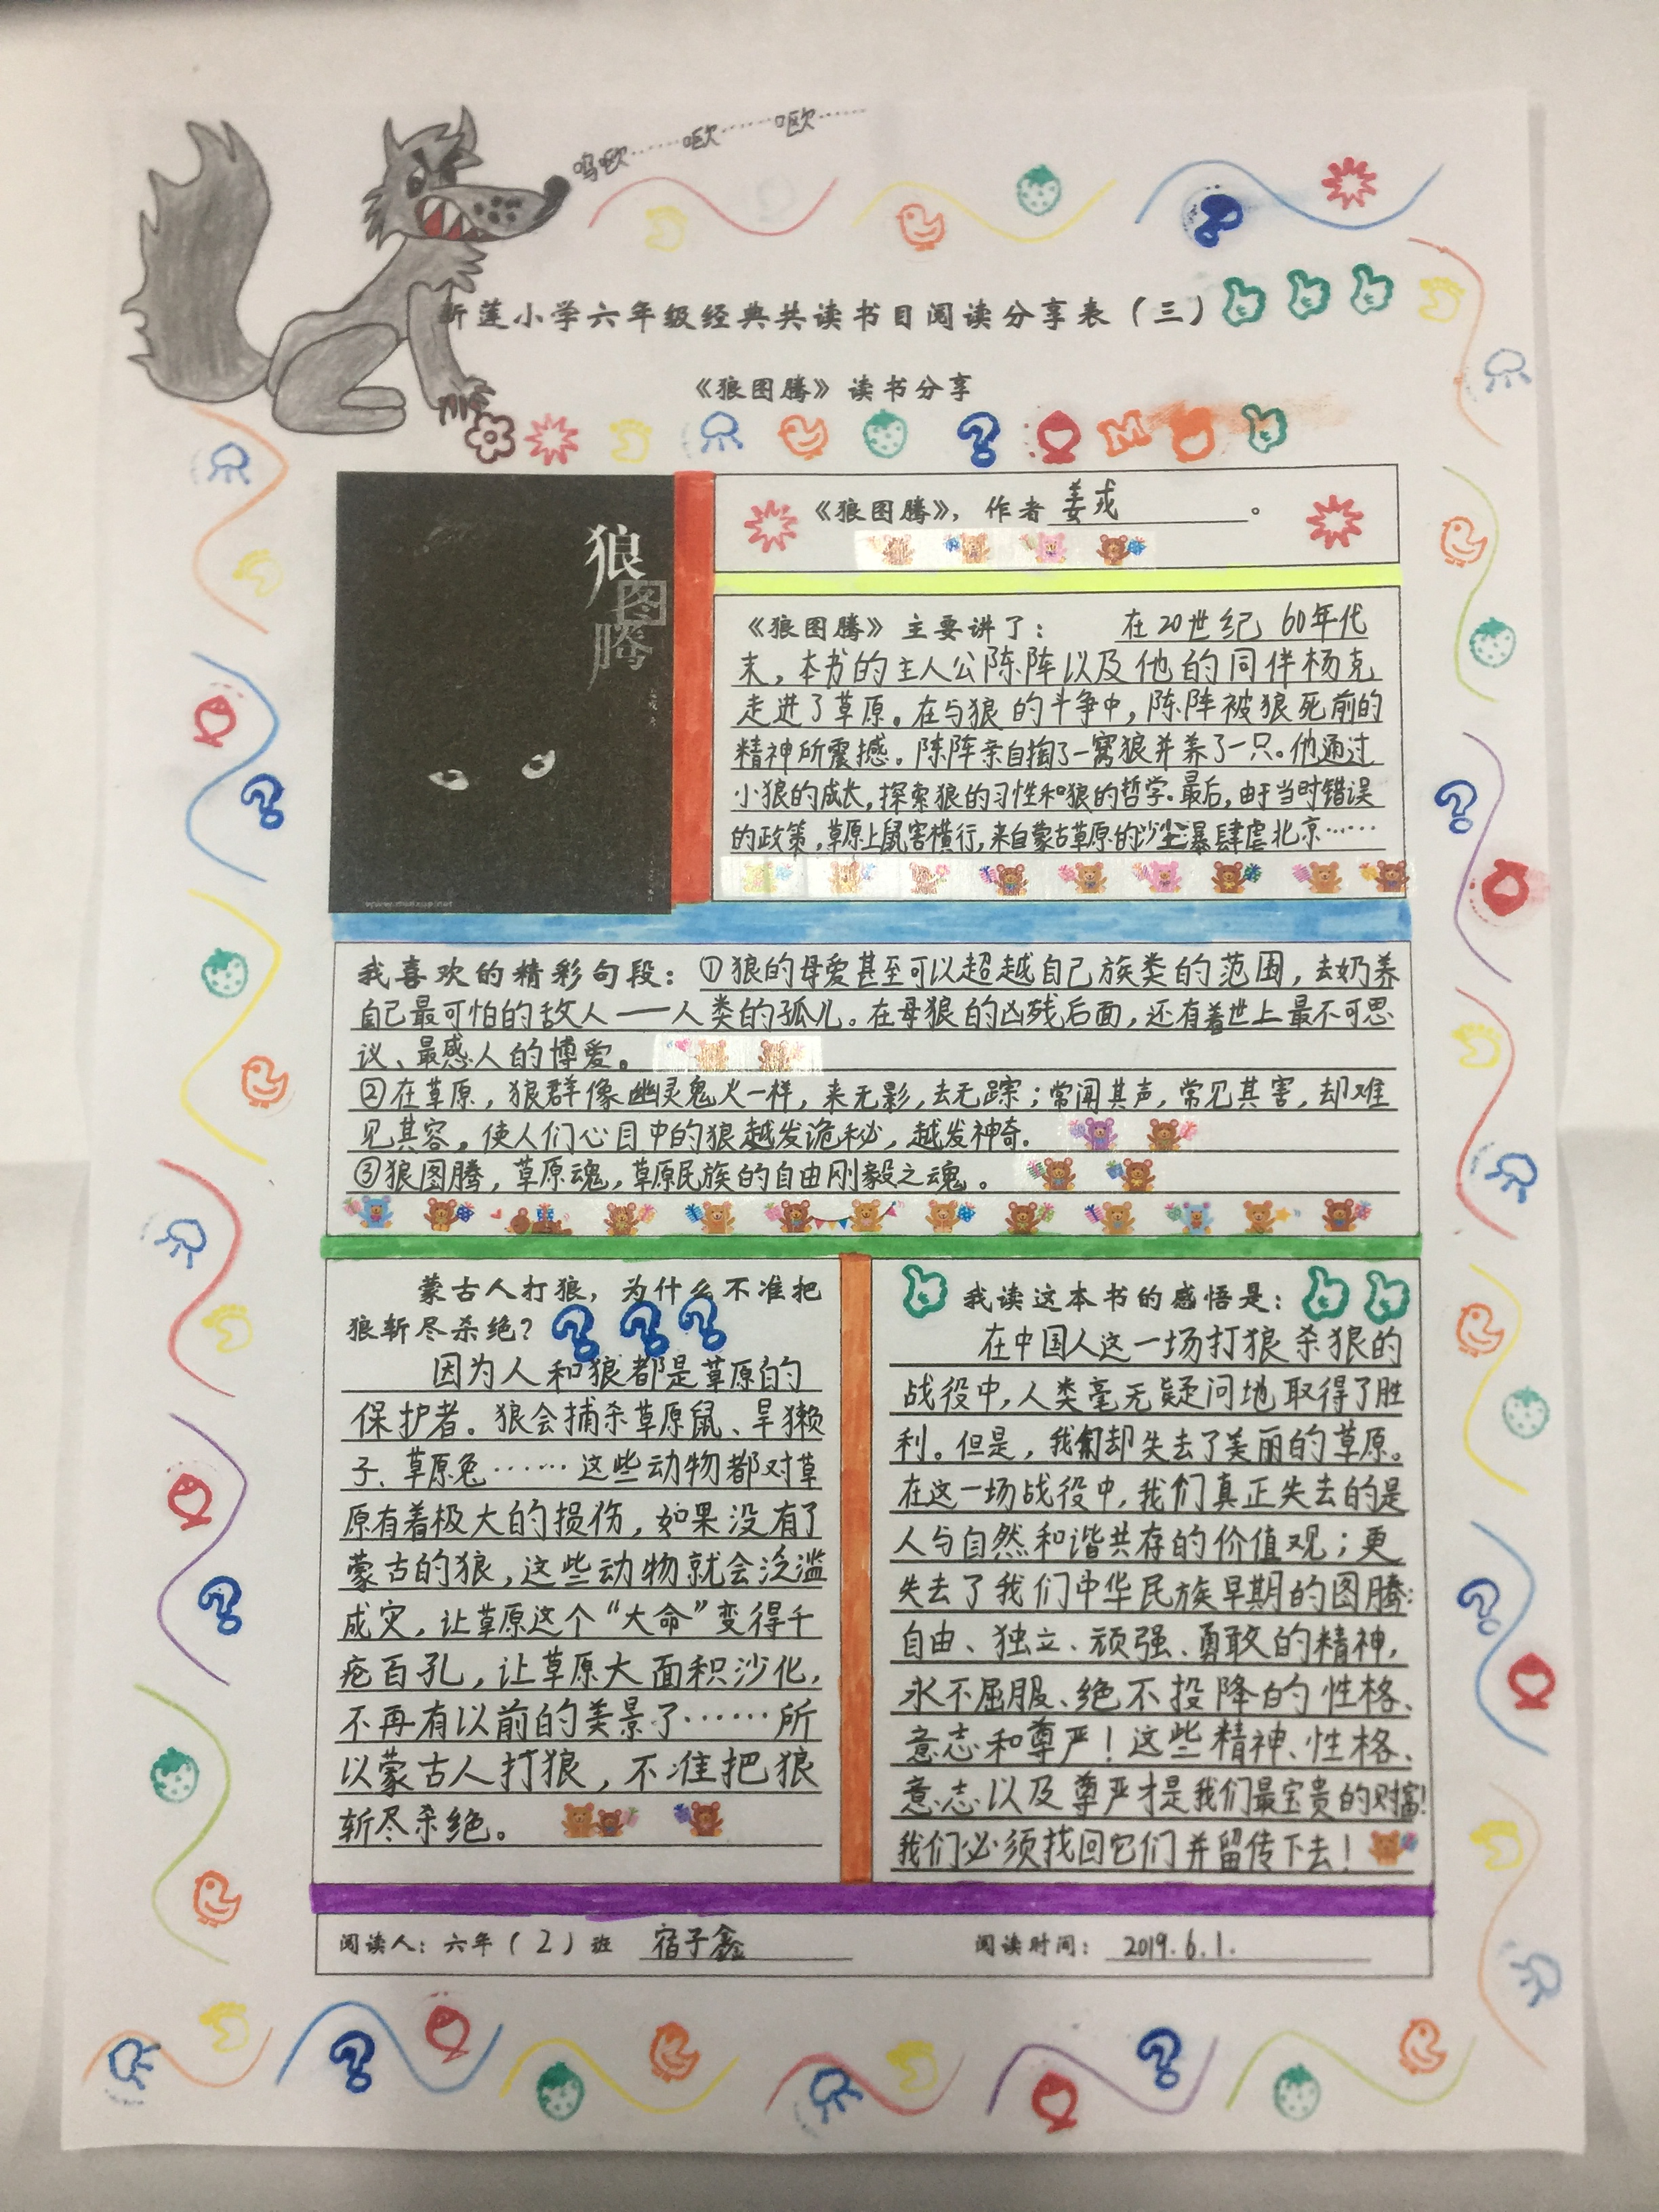 呜呕……呕……呕……
新莲小学六年级经典共读书目阅读分享表（三）
《狼图腾》读书分享
狼图腾
《狼图腾》，作者姜戎。
《狼图腾》主要讲了：在20世纪60年代
末，本书的主人公陈阵以及他的同伴杨克
走进了草原。在与狼的斗争中，陈阵被狼死前的
精神所震撼。陈阵亲自掏了一窝狼并养了一只。他通过
小狼的成长，探索狼的习性和狼的哲学。最后，由于当时错误
的政策，草原上鼠害横行，来自蒙古草原的沙尘瀑肆虐北京……
我喜欢的精彩句段：①狼的母爱甚至可以超越自己族类的范围，去奶养
自己最可怕的敌人——人类的孤儿。在母狼的凶残后面，还有着世上最不可思
议、最感人的博爱。
②在草原，狼群像幽灵鬼火一样，来无影，去无踪；常闻其声，常见其害，却难
见其容，使人们心目中的狼越发诡秘，越发神奇.
③狼图腾，草原魂，草原民族的自由刚毅之魂。
蒙古人打狼，为什么不准把
狼斩尽杀绝？
因为人和狼都是草原的
保护者。狼会捕杀草原鼠、旱獭
子、草原兔……这些动物都对草
原有着极大的损伤，如果没有了
蒙古的狼，这些动物就会泛滥
成灾，让草原这个“大命”变得千
疮百孔，让草原大面积沙化，
不再有以前的美景了……所
以蒙古人打狼，不准把狼
斩尽杀绝。
我读这本书的感悟是：
在中国人这一场打狼杀狼的
战役中，人类毫无疑问地取得了胜
利。但是，我们却失去了美丽的草原。
在这一场战役中，我们真正失去的是
人与自然和谐共存的价值观；更
失去了我们中华民族早期的图腾：
自由、独立、顽强、勇敢的精神，
永不屈服、绝不投降的性格、
意志和尊严！这些精神、性格、
意志以及尊严才是我们最宝贵的财富！
我们必须找回它们并留传下去！
阅读人：六年（2）班 宿子鑫 阅读时间：2019.6.1.